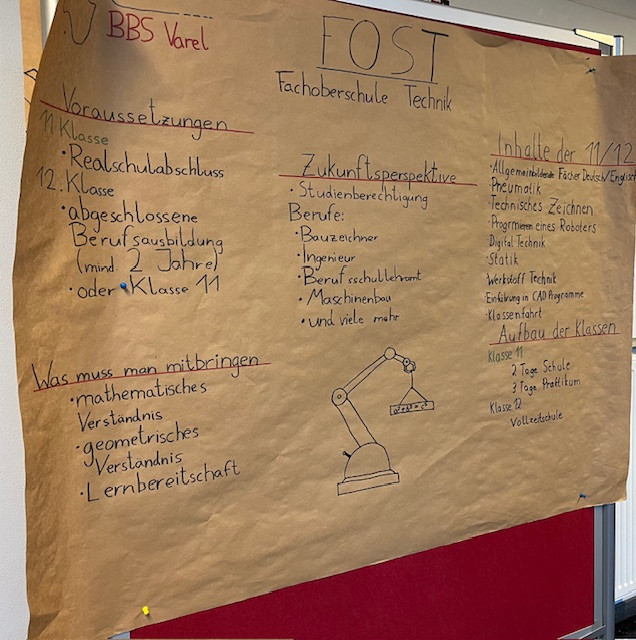 BBS Varel
FOST
Fachoberschule Technik
Voraussetzungen
11 Klasse
· Realschulabschluss
12. Klasse
· abgeschlossene
Berufsausbildung
(mind. 2 Jahre)
· oder Klasse 11
Was muss man mitbringen
· mathematisches
Verständnis
· geometrisches
Verständnis
· Lernbereitschaft
Zukunftsperspektive
· Studienberechtigung
Berufe:
· Bauzeichner
· Ingenieur
· Berufsschullehramt
· Maschinenbau
· und viele mehr
a²+b²=c²
Inhalte der 11/12
· Allgemeinbildende Fächer Deutsch/Englisch
· Pneumatik
· Technisches Zeichnen
· Progrmieren eines Roboters
· Digital Technik
· Statik
· Werkstoff Technik
· Einführung in CAD Programme
· Klassenfahrt
Aufbau der Klassen
Klasse 11
2 Tage Schule
3 Tage Praktikum
Klasse 12
Vollzeitschule